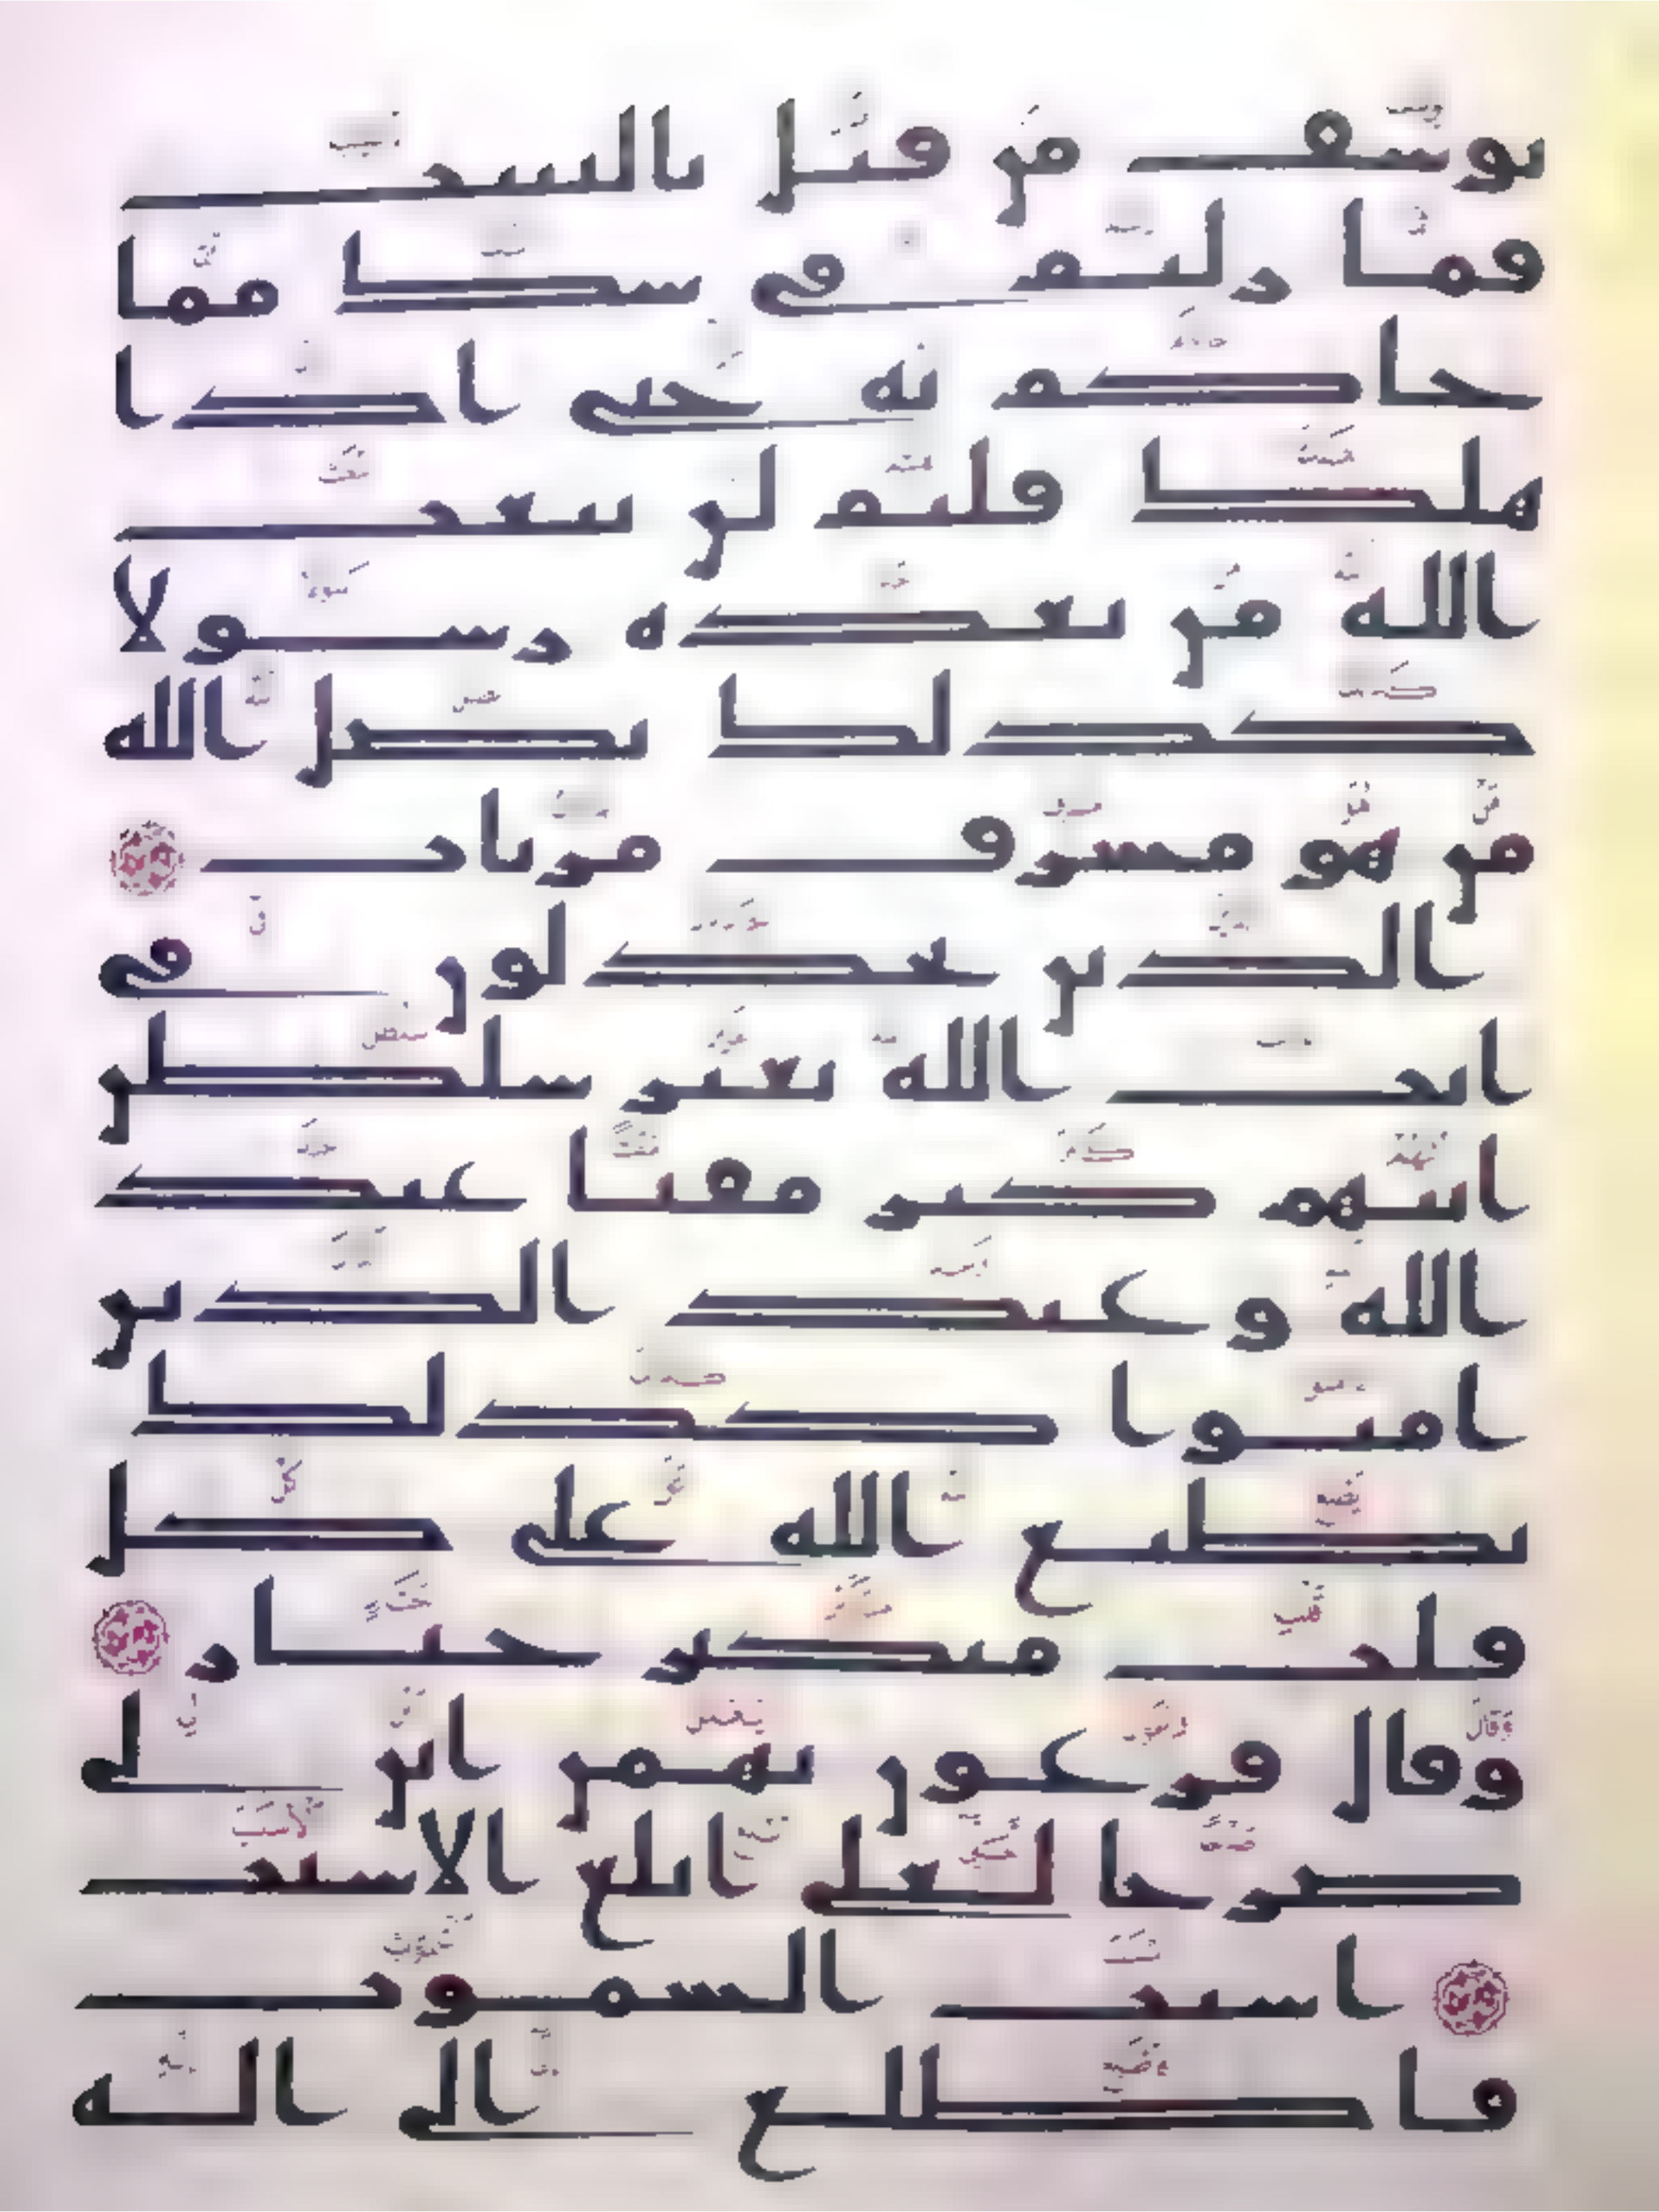 يوسف من قبل بالبينت
فما زلتم في شك مما
جاكم به حتى اذا
هلك قلتم لن يبعث
الله من بعده رسولا
كذلك يضل الله
من هو مسرف مرتاب
الذين يجدلون في
ايت الله بغير سلطن
اتيهم كبر مقتا عند
الله وعند الذين
امنوا كذلك
يطبع الله على كل
قلب متكبر جبار
وقال فرعون يهمن ابن لي
صرحا لعلي ابلغ الاسبب
اسبب السموت
فاطلع الى اله